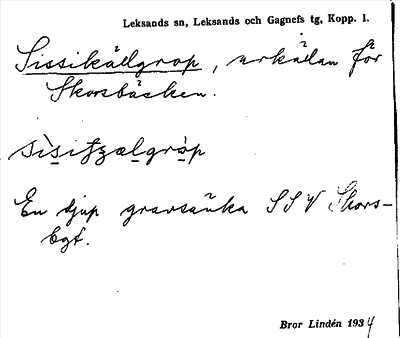 Leksands sn, Leksands och Gagnefs tg, Kopp. l.
Sissikällgrop, urkällan för
Skorsbäcken.
En djup gravsänka SSV Skors-
bgt.
Bror Lindén 1934